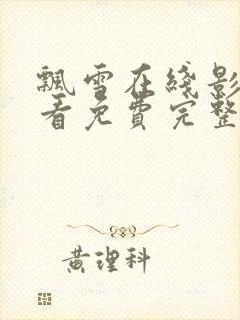 飘雪在线影
看免费完整
黄理科